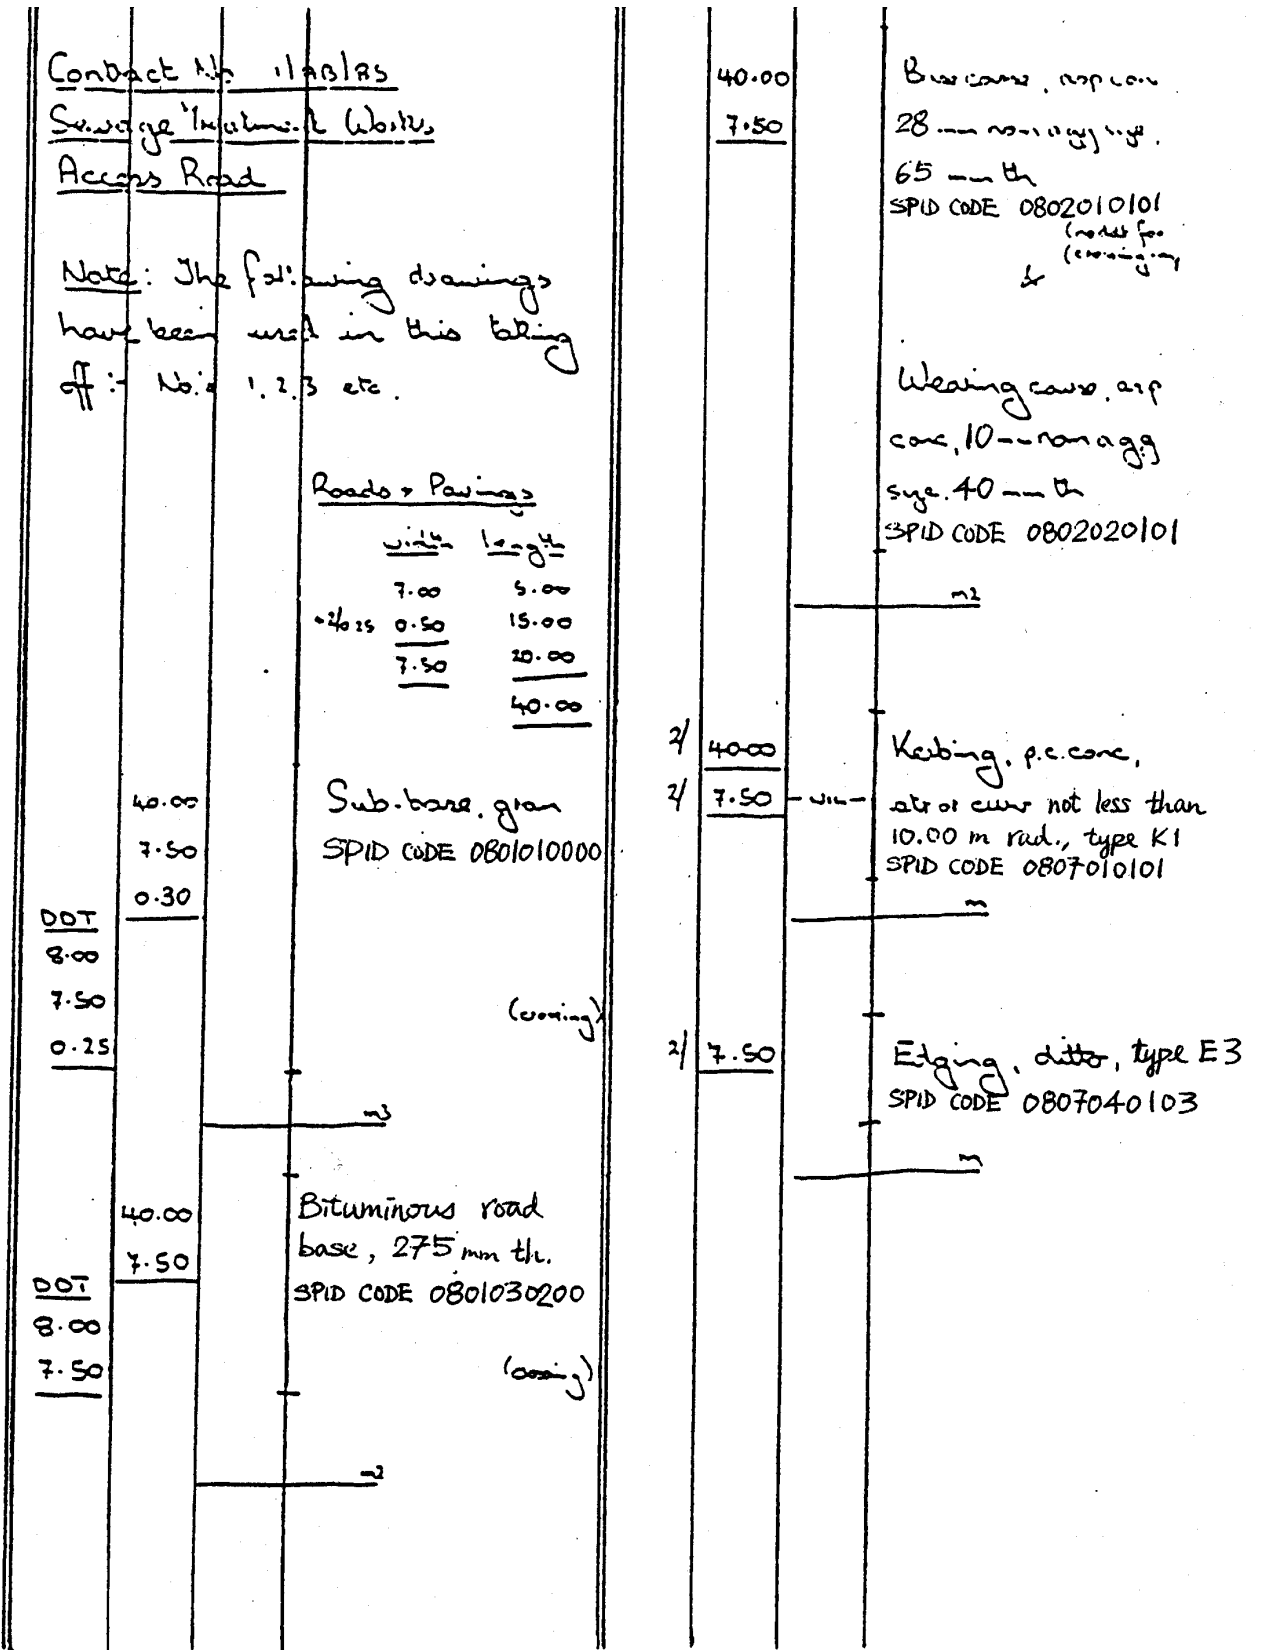 Contract No 1/AB/85
Sewage Treatment Works
Access Road
Note: The following drawings
have been used in this taking
off :- No.s 1, 2, 3 etc.
Roads & Pavings
width length
7.00 5.00
+2/0.25 0.50 15.00
7.50 20.00
40.00
40.00 Sub-base, gran
7.50 SPID CODE 0801010000
0.30
DOT
8.00
7.50 (crossing)
0.25
m3
40.00 Bituminous road
7.50 base, 275 mm th.
DOT SPID CODE 0801030200
8.00
7.50 (crossing)
m2
40.00 Base course, asp conc
7.50 28 mm nom agg size,
65 mm th
SPID CODE 0802010101
(no ddt for
(crossing
&
Wearing course, asp
conc, 10 mm nom agg
size, 40 mm th
SPID CODE 0802020101
m2
2/ 40.00 Kerbing, p.c. conc,
2/ 7.50 - NIL - str or curv not less than
10.00 m rad., type K1
SPID CODE 0807010101
m
2/ 7.50 Edging, ditto, type E3
SPID CODE 0807040103
m